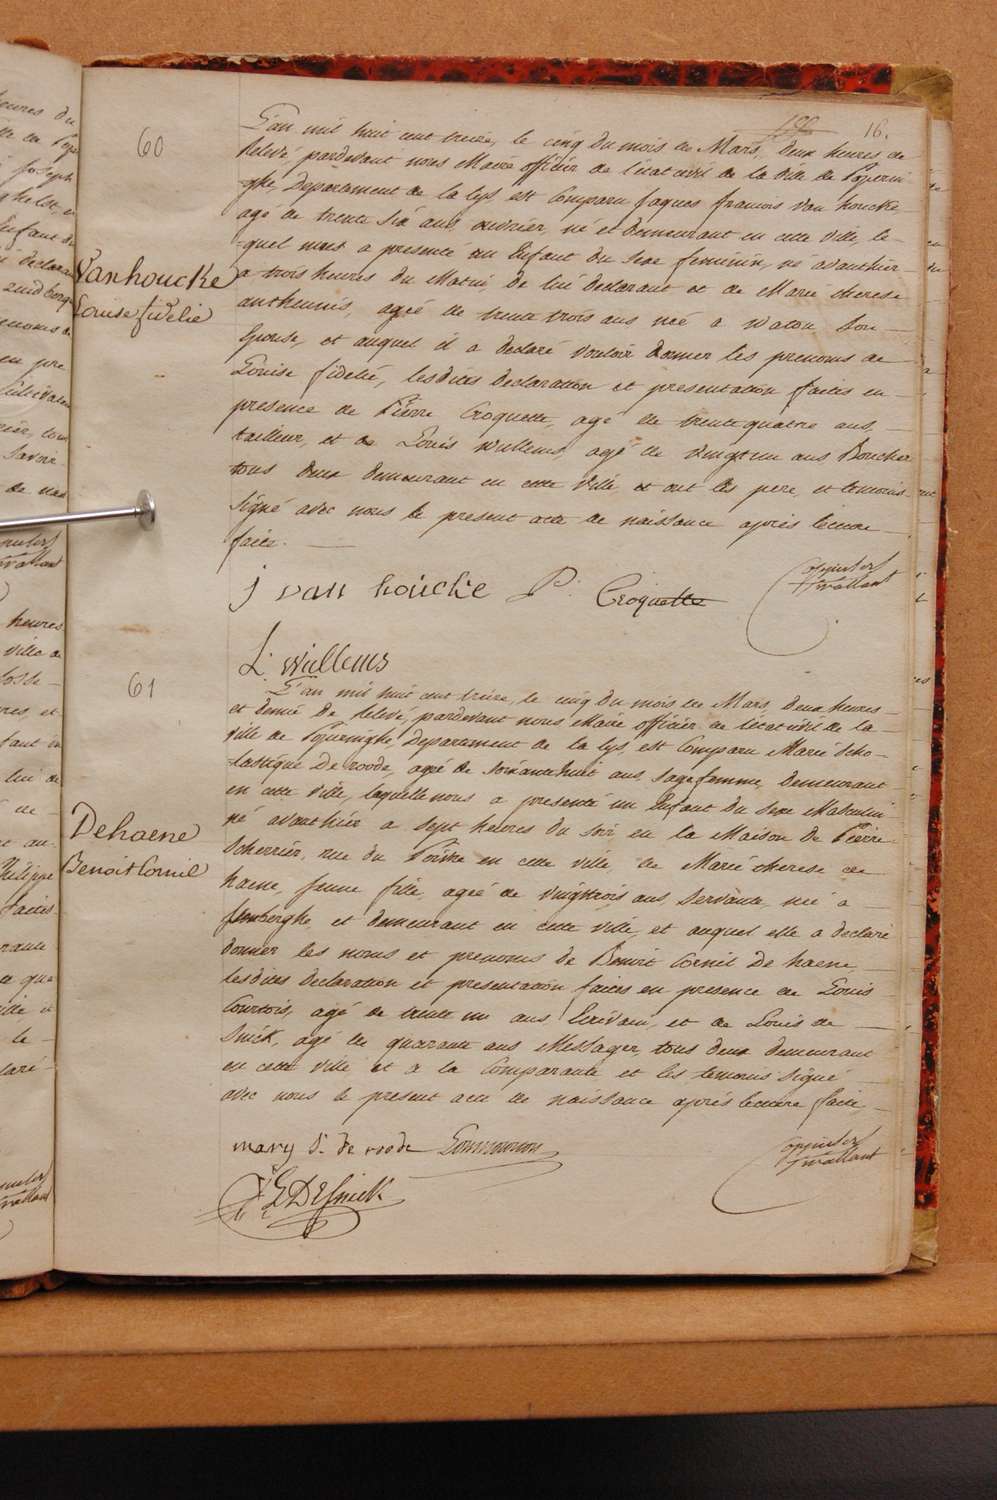 16.
60
L'an mil huit cent treize, le cinq du mois de Mars, deux heures de
Relevé, pardevant nous Maire officier de l'état civil de la ville de Poperin
-ghe, Departement de la lys, est Comparu Jaques francois Van houcke
agé de trente Six ans ouvrier, né et demeurant en cette ville, le-
-quel nous a presenté un Enfant du Sexe feminin, né avanthier
a trois heures du Matin, de lui declarant et de Marie therese
antheunis, agée de trente trois ans née a Watou Son
Epouse, et auquel il a declaré vouloir donner les prenoms de
Vanhoucke
Louise fidelie
Louise fidelie, lesdites declaration et presentation faites en
presence de Pierre Croquette, agé de trente quatre ans,
tailleur, et de Louis Wullems, agé de vingt un ans Boucher
tous deux demeurant en cette ville et ont les pere, et temoins
Signé avec nous le present acte de naissance après lecture
faite.
j van houcke P. Croquette
L. Wullems
61
L'an mil huit cent treize, le cinq du mois de Mars, deux heures
et demie de Relevé, pardevant nous Maire officier de l'état civil de la
ville de Poperinghe, Departement de la lys, est Comparu Marie Scho-
-lastique De roode, agée de Soixante huit ans, Sagefemme, demeurant
en cette ville, laquelle nous a presenté un Enfant du Sexe Masculin
né avanthier a Sept heures du Soir en la Maison de Pierre
Scherrier, rue du en cette ville, de Marie therese de
Dehaene
Benoit Cornil
haene, jeune fille, agée de vingttrois ans, Servante, née a
et demeurant en cette ville, et auquel elle a declaré
donner les noms et prenoms de Benoit Cornil De haene
lesdites declaration et presentation faites en presence de Louis
Courtois, agé de trente un ans Ecrivain, et de Louis de
Snick, agé de quarante ans Messager, tous deux demeurant
en cette ville et a la Comparante et les temoins Signé
avec nous le present acte de naissance après lecture faite
mary S. de roode
L DESnick